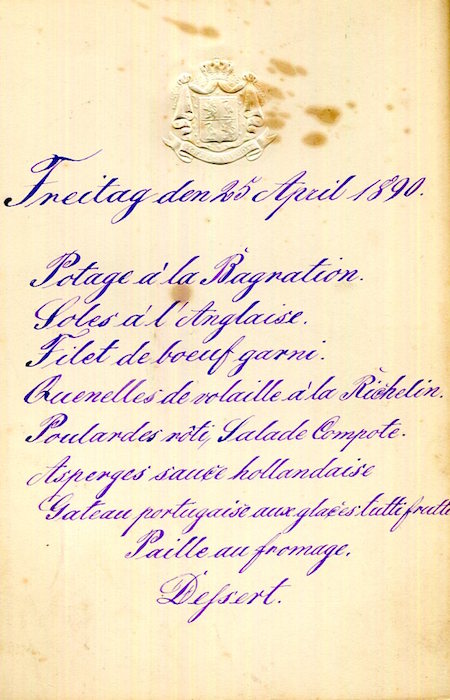 Freitag den 25 April 1890.
Potage à la Bagration.
Soles à l'Anglaise.
Filet de boeuf garni.
Quenelles de volaille à la Richelin.
Poulardes rôti, Salade Compote.
Asperges sauce hollandaise
Gateau portugaise aux glaçes tutti frutti
Paille au fromage.
Dessert.